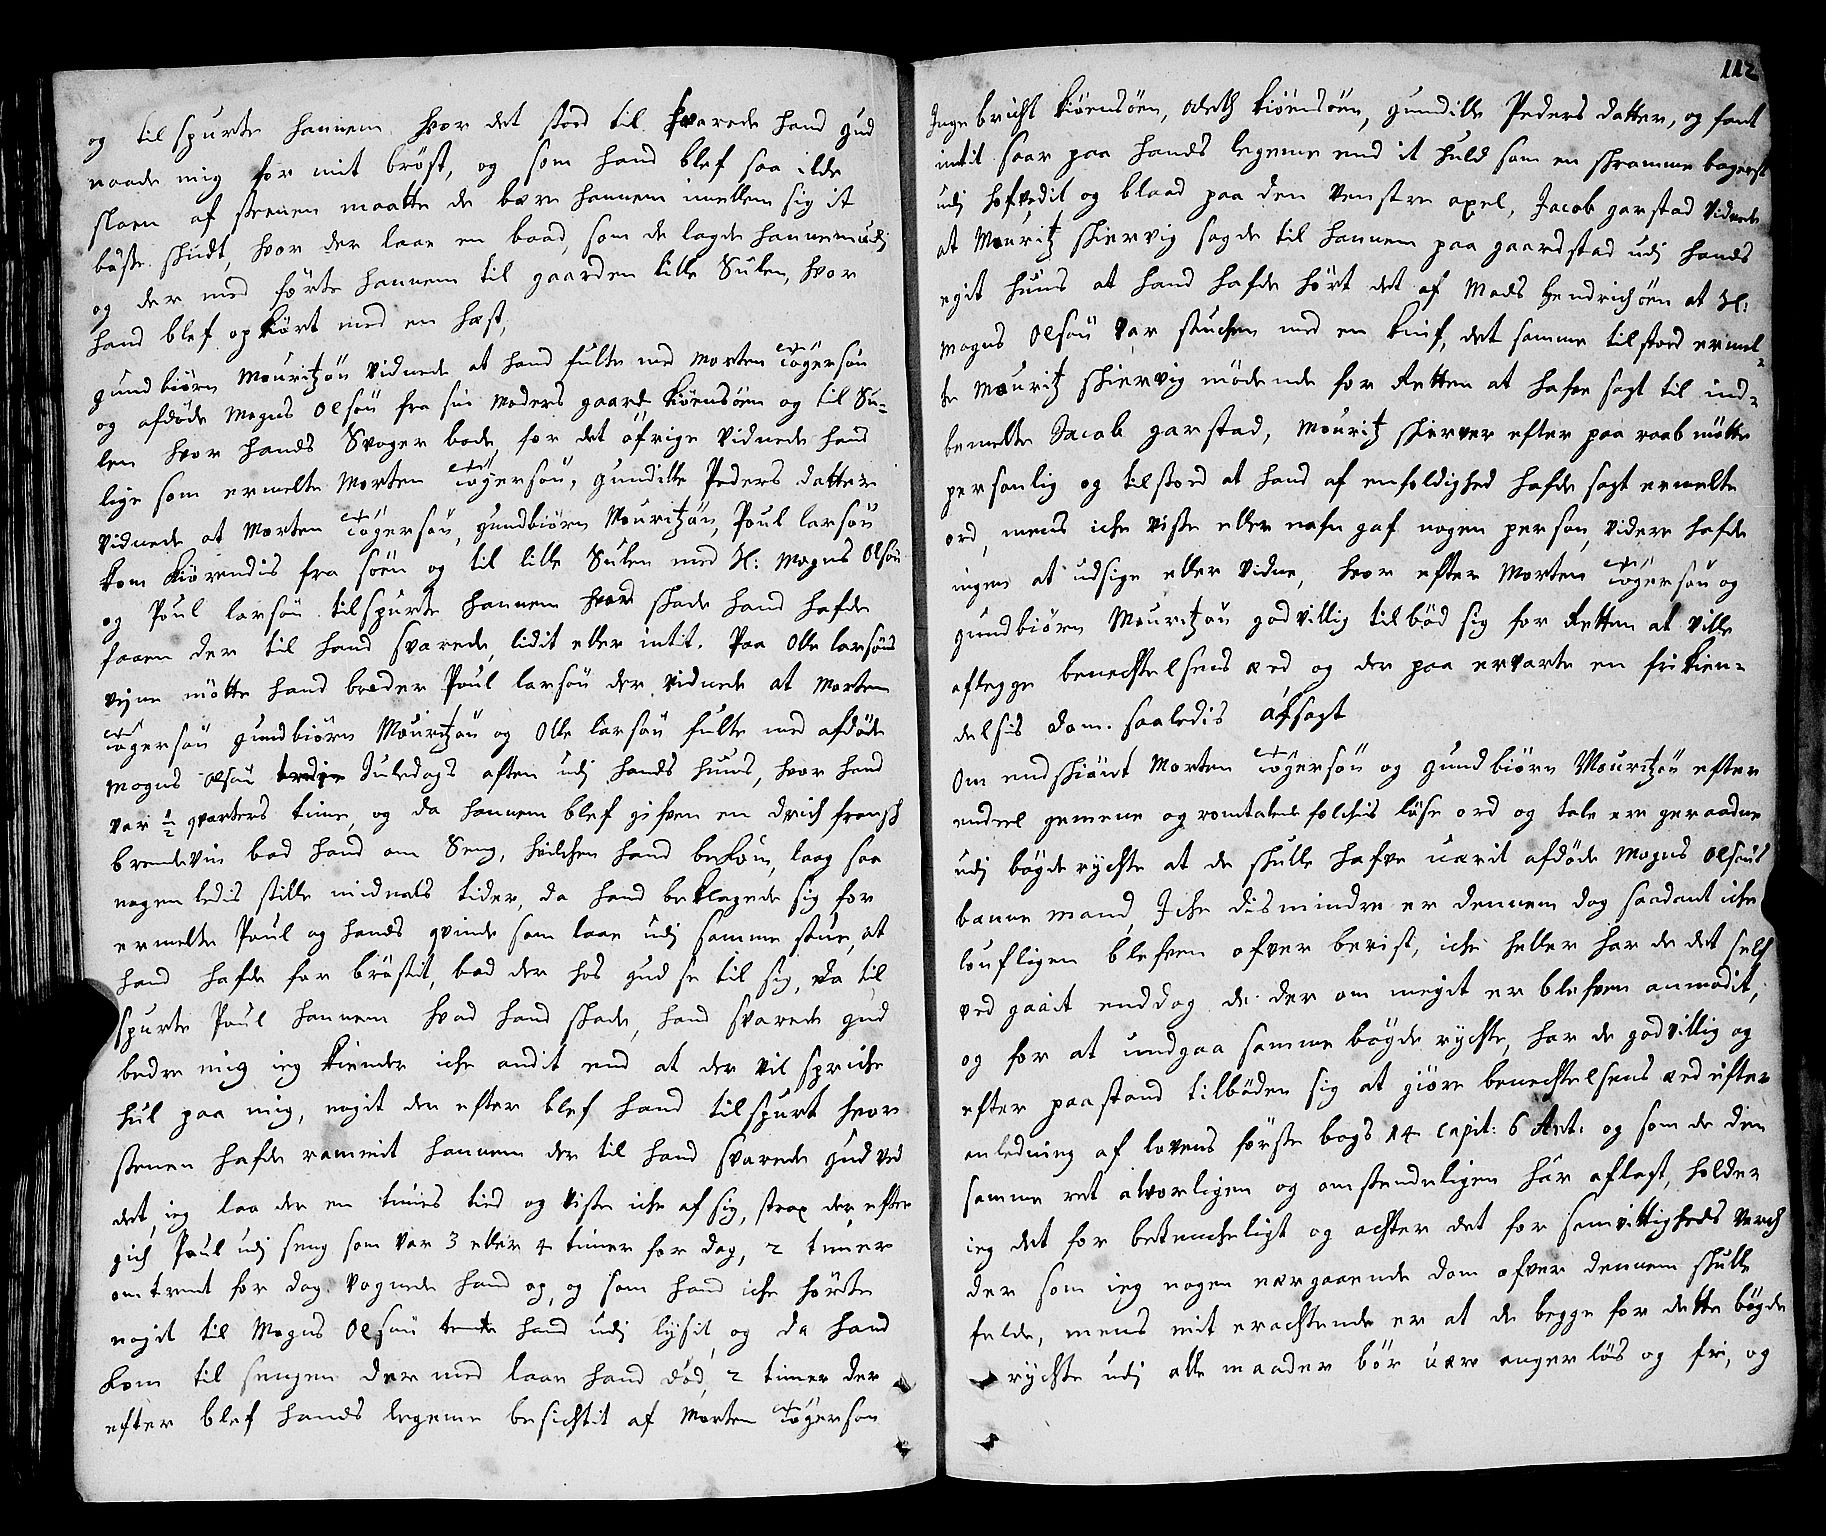 og til spurte hannem hvor det stod til. svarede hand gud
naade mig for mit bröst, og som hand blef saa ilde
slaen af steenen maatte de bære hannem imellem sig it
bösse skudt, hvor der laae en baad, som de lagde hannem udj
og der med förte hannem til gaarden lille Sulen, hvor
hand blef op kiört med en hæst,
gundbiörn Mouritzön vidnede at hand fulte med Morten Tögersön
og afdöde Mogns Olsön fra sin Moders gaard Kiönsöen og til Su-
len hvor hands Svoger bode, for det öfrige vidnede hand
lige som ermelte Morten Tögersön, gundille Peders datter
vidnede at Morten Tögersön, gundbiörn Mouritzön, Poul larsön
kom kiörendis fra söen og til lille Sulen med Sl: Mogns Olsön
og Poul larsön tilspurte hannem hvad skade hand hafde
faaen der til hand svarede, lidit eller intit. Paa Olle larsöns
vegne mötte hand broder Poul larsön der vidnede at Morten
Tögersön gundbiörn Mouritzön og Olle larsön fulte med afdöde
Mogns olsön Juledags aften udj hands huus, hvor hand
var ½ qvarters time, og da hannem blef gifven en drich fransk
brendevin bad hand om Seng, hvilchen hand bekom, laag saa
nogen ledis stille midnats tider, da hand beklagede sig for
ermelte Poul og hands qvinde som laae udj samme stue, at
hand hafde for bröstit, bad der hos gud se til sig, da til
spurte Poul hannem hvad hand skade, hand svarede gud
bedre mig ieg kiender iche andit end at der vil spriche
hul paa mig, nogit der efter blef hand tilspurt hvor
stenen hafde rammit hannem der til hand svarede gud ved
det, ieg laa der en times tid og viste iche af sig, strax der efter
gich Poul udj seng som var 3 eller 4 timer for dag, 2 timer
omtrent for dag vognede hand op, og som hand iche hörte
nogit til Mogns Olsön tente hand udj lyset, og da hand
kom til sengen der med laae hand död, 2 timer der
efter blef hands legeme besichtit af Morten Tögersön
112
Ingebricht Kiönsöen, Kiönsöen, gundille Peders datter, og fant
intit saar paa hands legeme end it huld som en skramme bagerst
udj hofvedit og blaad paa den venstre axel, Jacob garstad vidnede
at Mouritz skiervig sagde til hannem paa gaardstad udj hands
egit huus at hand hafde hört det af Mads Hendrichsön at Sl:
Mogns Olsön var stuchen med en knif, det samme tilstod ermel-
te Mouritz skiervig mödende for Retten at hafve sagt til ind-
bemelte Jacob garstad, Mouritz skierver efter paa raab mötte
personlig og tilstod at hand af enfoldighed hafde sagt ermelte
ord, mens iche viste eller nafn gaf nogen person, videre hafde
ingen at udsige eller vidne, hvor efter Morten Tögersön og
gundbiörn Mouritzön godvillig tilböd sig for Retten at ville
aflegge benechtelsens æd og der paa ervarte en frikien-
delsis dom. saaledis afsagt
Om endskiönt Morten Tögersön og gundbiörn Mouritzön efter
endeel gemene og folchis löse ord og tale ere geraadne
udj bögde rychte at de skulle hafve uærit afdöde Mogns Olsöns
bane mand, Iche dismindre er dennem dog saadant iche
loufligen blefven ofver bevist, iche heller har de det self
ved gaait enddog de der om megit er blefven anmodit,
og for at undgaa samme bögde rychte, har de godvillig og
efter paastand tilböden sig at giöre benechtelsens æd efter
anledning af lovens förste bogs 14 capit: 6 Art: og som de den
samme ret alvorligen og omstendeligen har aflagt, holder
ieg det for betencheligt og achter det for samvittigheds verch
der som ieg nogen nærgaaende dom ofver dennem skulle
felde, mens mit erachtende er at de begge for dette bögde
rychte udj alle maader bör uære angerlös og fri, og